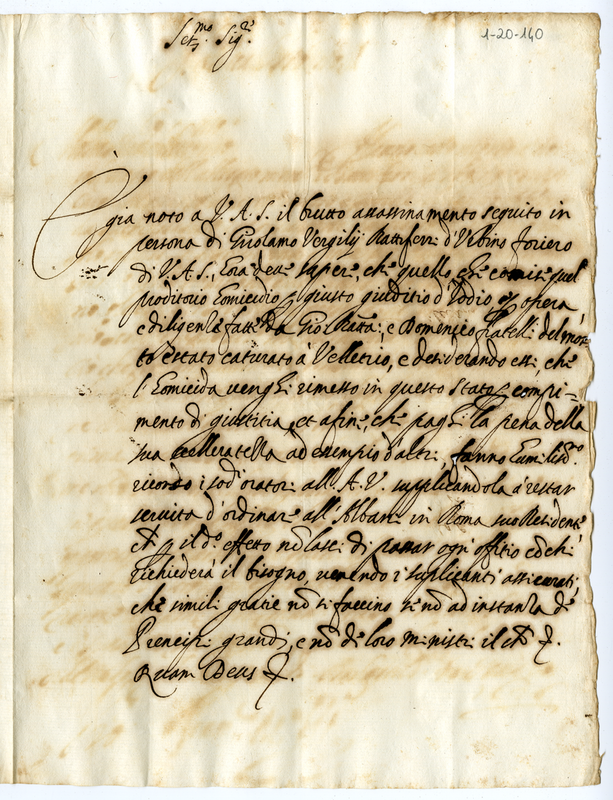 Ser.mo Sig.re
1-20-140
È già noto a V. A. S. il brutto assassinamento seguito in
persona di Girolamo Vergilij Battiferri d'Urbino foriero
di V. A. S., hora deve sapere, che quello che comise quel
proditorio homicidio p giusto giuditio d'Iddio et opera
e diligenza fatta da Gio: Batta: e Domenico fratelli del mor=
to è stato caturato à Velletrio, e desiderando essi, che
l'homicida venghi rimesso in questo stato p compi=
mento di giustitia, et afine, che paghi la pena della
sua scelleratezza ad esempio d'altri, fanno humiliss.o
ricordo i sod.i oratori all'A. V. supplicandola à restar
servita d'ordinare all'Albani in Roma suo Residente
ch p il d.o effetto nō lasci di passar ogn'offitio cō chi
richiederà il bisogno, venendo i suplicanti assicurati,
che simili gratie nō si faccino se nō ad instanza de
Prencipi grandi, e nō de loro ministri il ch
Quam Deus